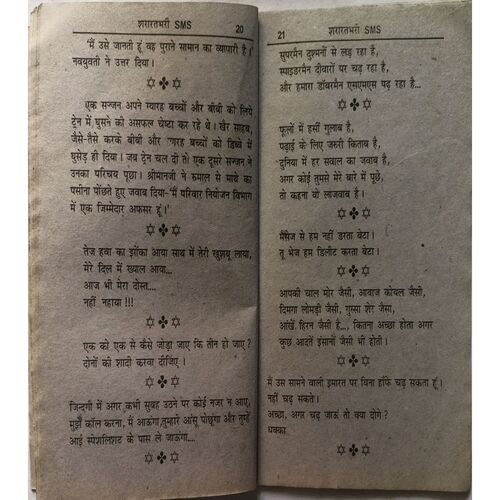 शरारतभरी SMS 20
'मैं उसे जानती हूं वह पुराने सामान का व्यापारी है।'
नवयुवती ने उत्तर दिया।
एक सज्जन अपने ग्यारह बच्चों और बीबी को लिये
ट्रेन में घुसने की असफल चेष्टा कर रहे थे। खैर साहब,
जैसे-तैसे करके बीबी और ग्यारह बच्चों को डिब्बे में
घुसेड़ ही दिया। जब ट्रेन चल दी तो एक दूसरे सज्जन ने
उनका परिचय पूछा। श्रीमानजी ने रुमाल से माथे का
पसीना पोंछते हुए जवाब दिया-'मैं परिवार नियोजन विभाग
में एक जिम्मेदार अफसर हूं।'
तेज हवा का झोंका आया साथ में तेरी खुशबू लाया,
मेरे दिल में ख्याल आया...
आज भी मेरा दोस्त...
नहीं नहाया !!!
एक को एक से कैसे जोड़ा जाए कि तीन हो जाए ?
दोनों की शादी करवा दीजिए ।
जिन्दगी में अगर कभी सुबह उठने पर कोई नजर न आए,
मुझे कॉल करना, मैं आऊंगा,तुम्हारे आंसू पोछूंगा और तुम्हें
आई स्पेशलिशट के पास ले जाऊंगा...
21 शरारतभरी SMS
सुपरमैन दुश्मनों से लड़ रहा है,
स्पाइडरमैन दीवारों पर चढ़ रहा है,
और हमारा डॉबरमैन एसएमएस पढ़ रहा है...
फूलों में हसीं गुलाब है,
पढ़ाई के लिए जरुरी किताब है,
दुनिया में हर सवाल का जवाब है,
अगर कोई तुमसे मेरे बारे में पूछे,
तो कहना वो लाजवाब है।
मैसेज से हम नहीं डरता बेटा।
तू भेज हम डिलीट करता बेटा।
आपकी चाल मोर जैसी, आवाज कोयल जैसी,
दिमगा लोमड़ी जैसी, गुस्सा शेर जैसा,
आंखें हिरन जैसी है..., कितना अच्छा होता अगर
कुछ आदतें इंसानों जैसी भी होती।
मैं उस सामने वाली इमारत पर बिना हांफे चढ़ सकता हूं।
नहीं चढ़ सकते।
अच्छा, अगर चढ़ जाऊं तो क्या दोगे ?
धक्का